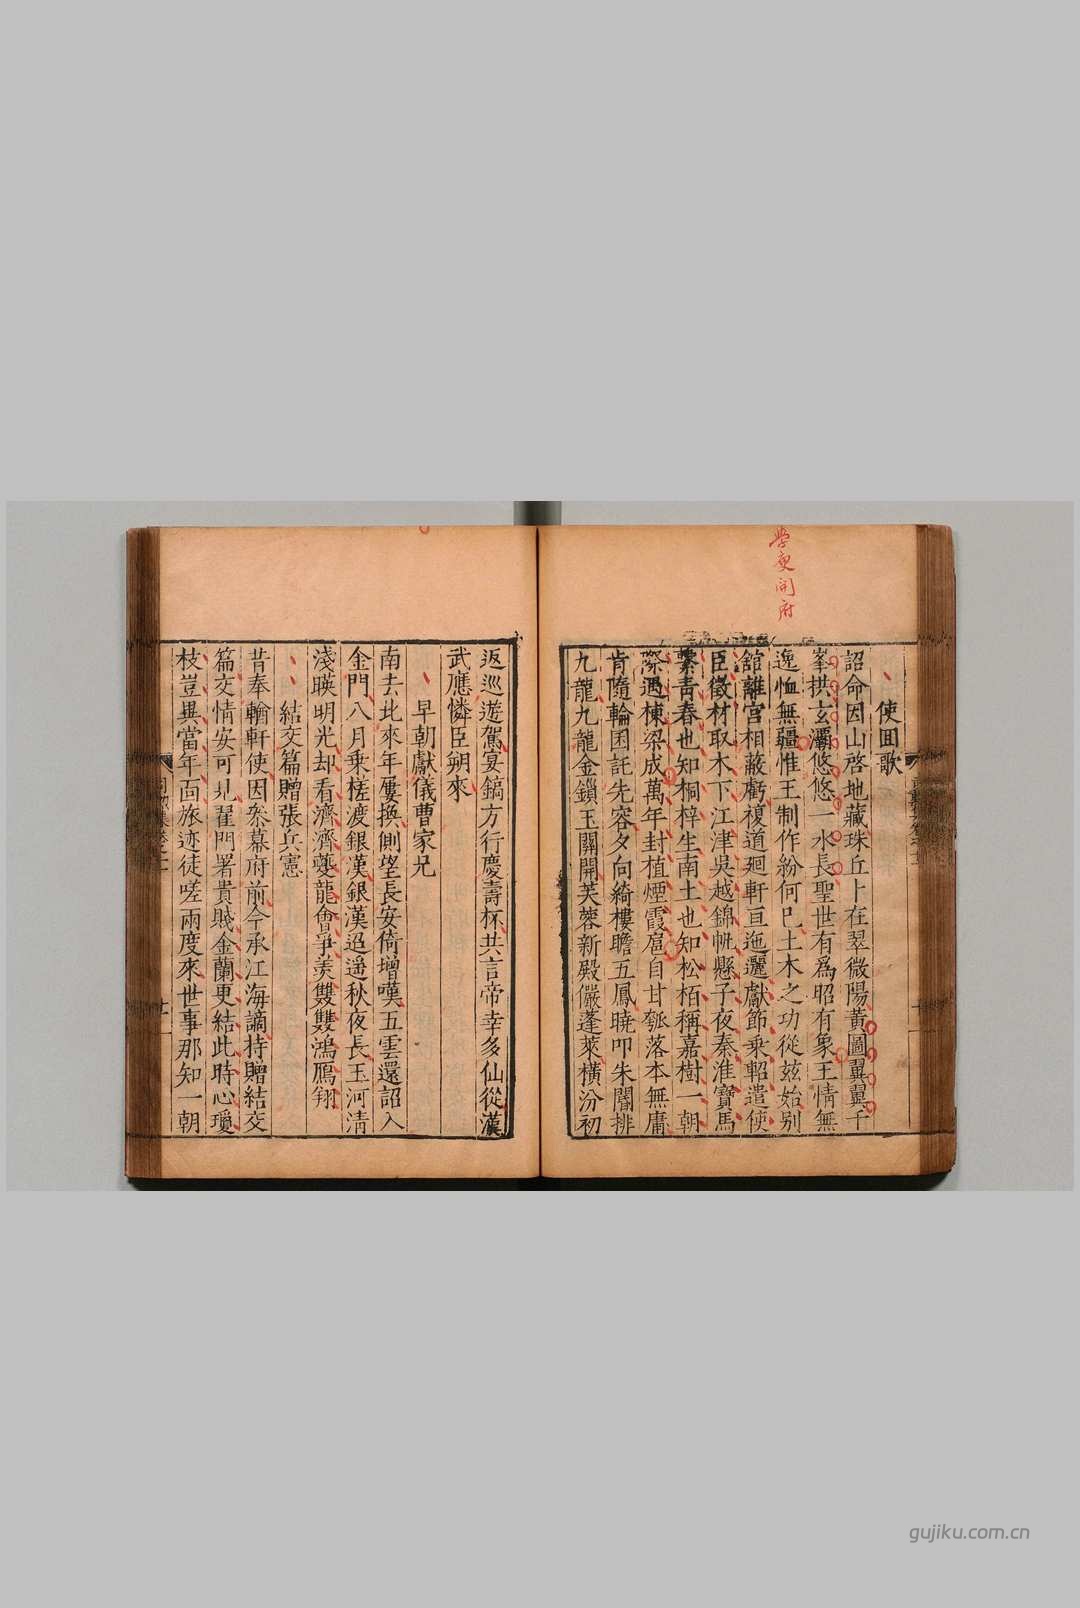 學庾開府
使回歌
詔命因山啓地藏珠丘卜在翠微陽黃圖翼翼千
峯拱玄灞悠悠一水長聖世有爲昭有象王情無
逸恤無疆惟王制作紛何已土木之功從玆始別
舘離宮相蔽虧複道廻軒亘迤邐獻節乘軺遣使
臣徵材取木下江津吳越錦帆懸子夜秦淮寶馬
繫青春也知桐梓生南土也知松栢稱嘉樹一朝
際遇棟梁成萬年封植煙霞扈自甘瓠落本無庸
肯隨輪囷託先容夕向綺樓瞻五鳳曉叩朱闇排
九龍九龍金鎖玉關開芙蓉新殿儼蓬萊橫汾初
返巡遊駕宴鎬方行慶壽杯共言帝幸多仙從漢
武應憐臣朔來
早朝獻儀曹家兄
南去北來年屢換側望長安倚增嘆五雲還詔入
金門八月乗槎渡銀漢銀漢迢遥秋夜長玉河清
淺暎明光却看濟濟夔龍會爭羨雙雙鴻鴈翔
結交篇贈張兵憲
昔奉輶軒使因叅幕府前今承江海謫持贈結交
篇交情安可見翟門署貴賤金蘭更結此時心瓊
枝豈異當年面旅迹徒嗟兩度來世事那知一朝
gujiku.com.cn